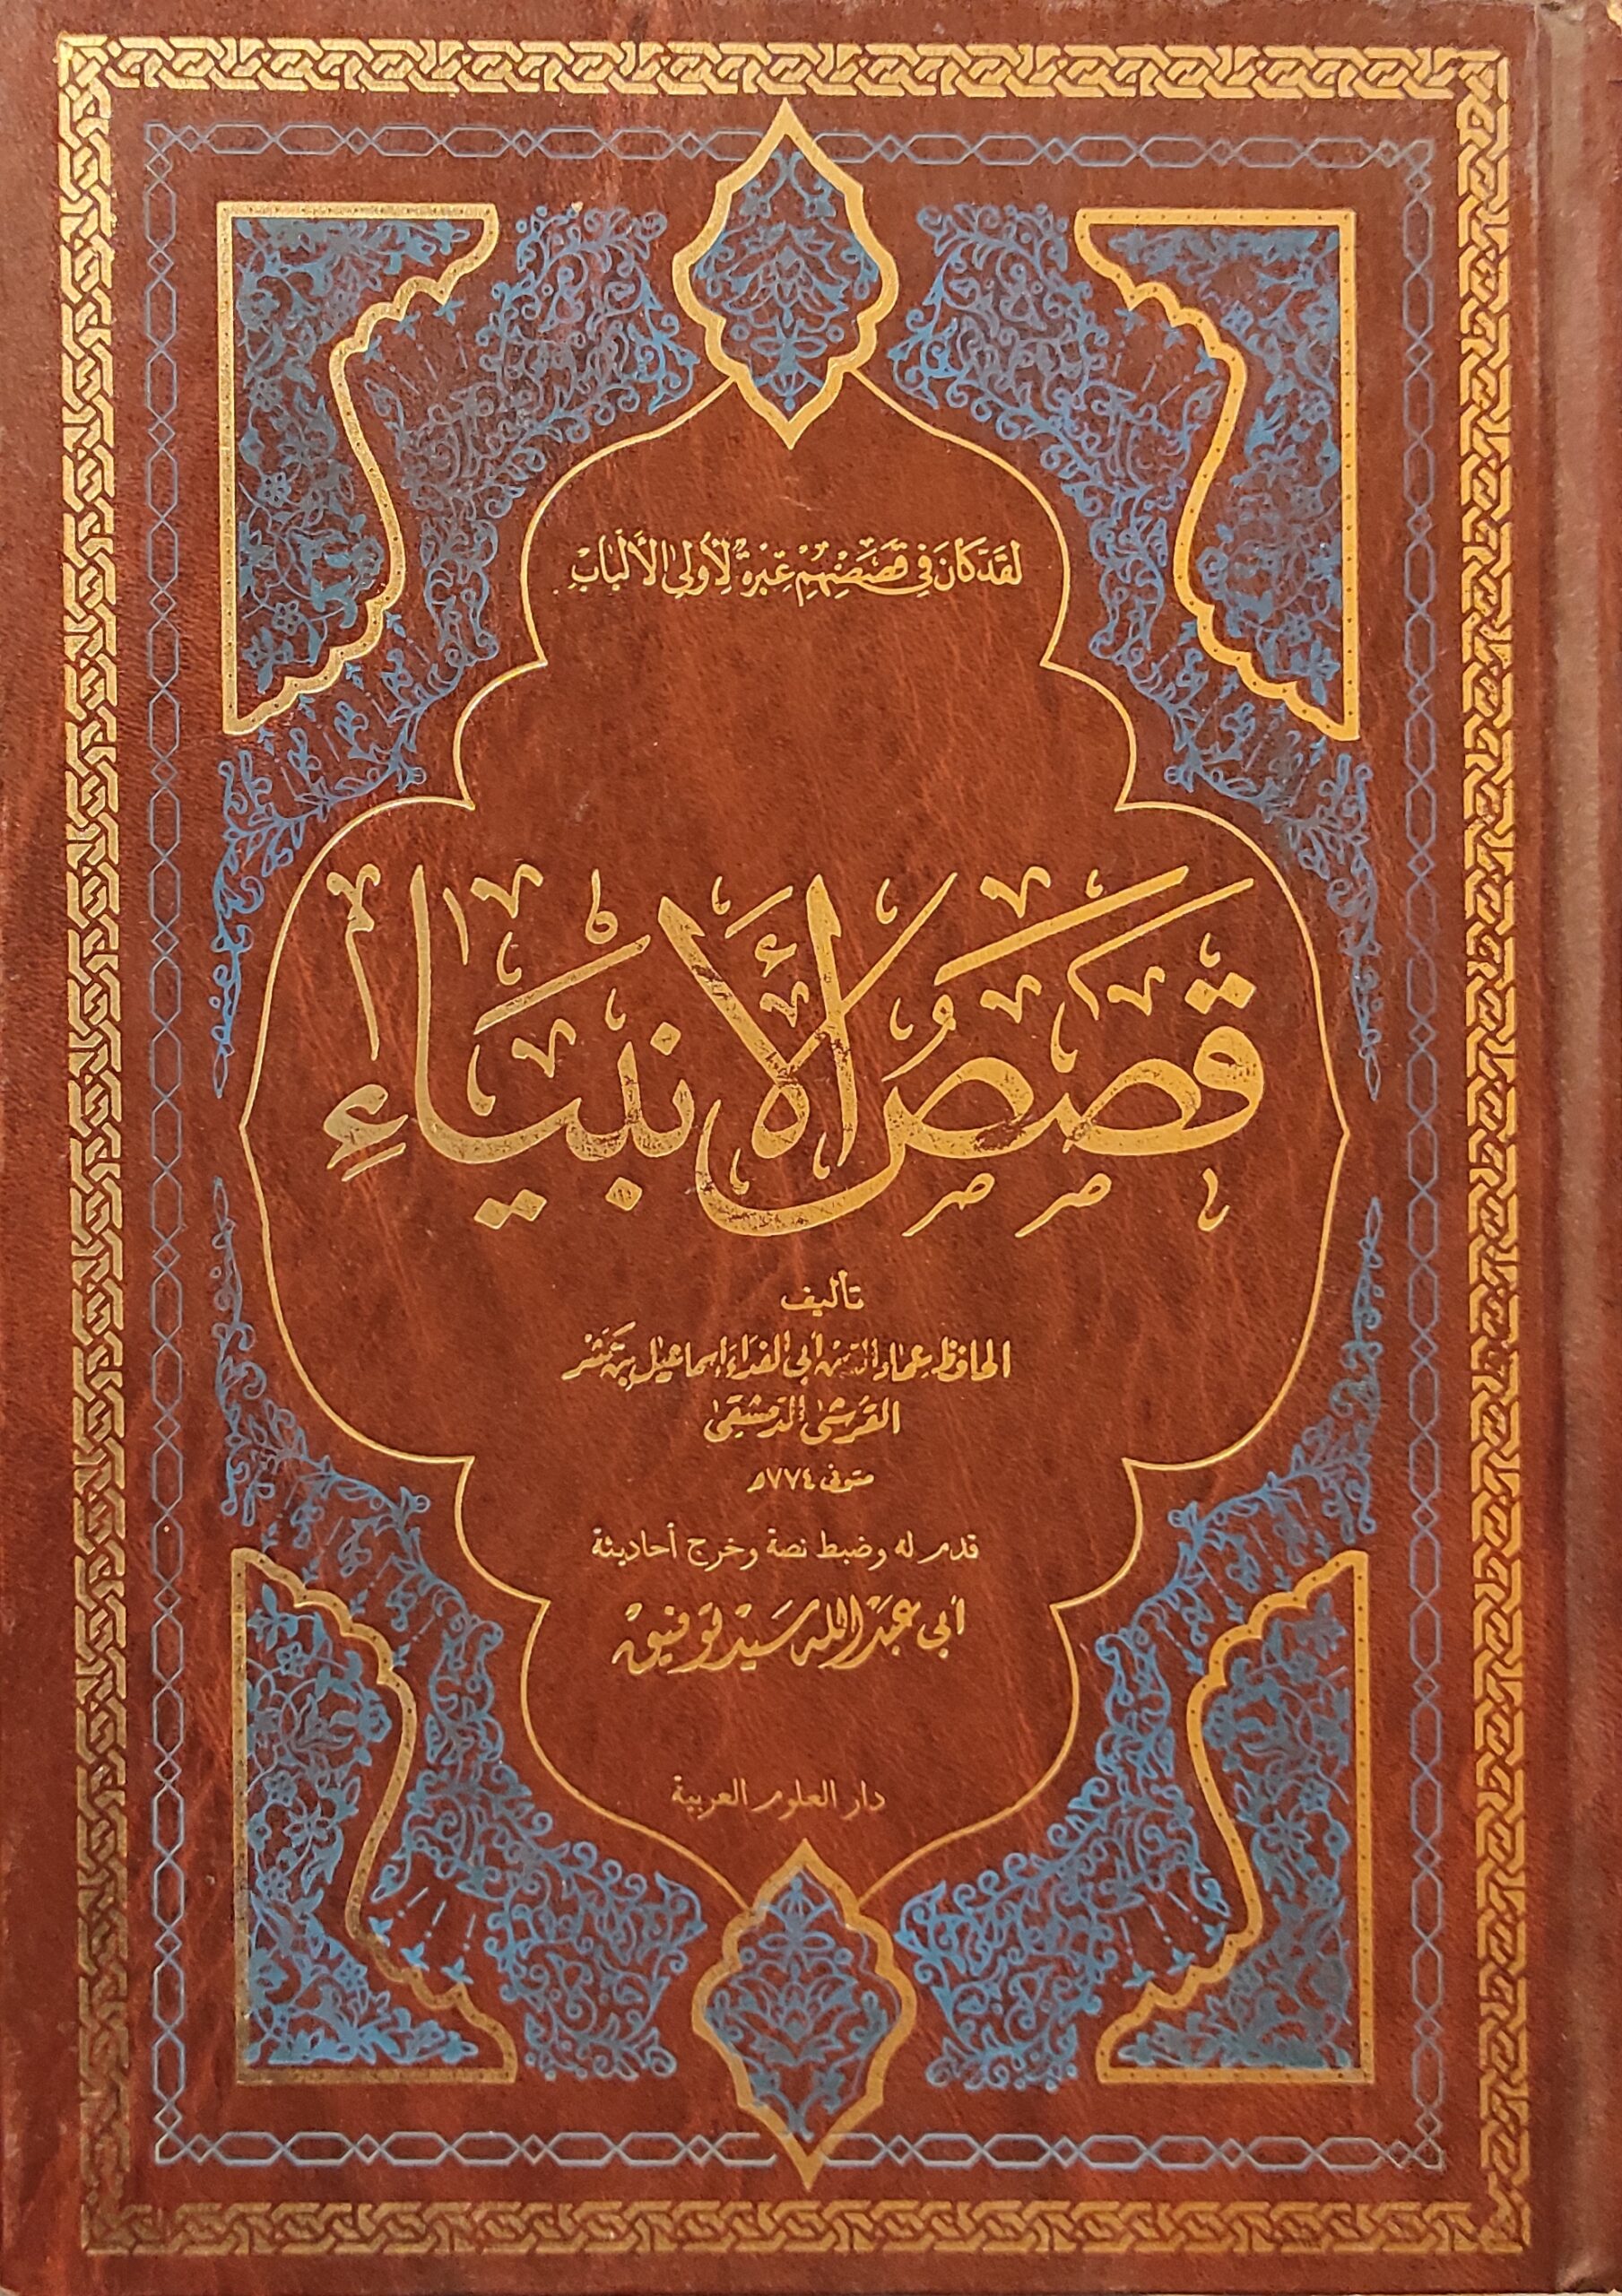 لَقَدْ كَانَ فِي قَصَصِهِمْ عِبْرَةٌ لِأُولِي الأَلْبَابِ
قَصَصُ الأَنْبِيَاءِ
تأليف
الحافظ عماد الدين أبي الفداء إسماعيل بن كثير
القرشي الدمشقي
متوفى ٧٧٤هـ
قدم له وضبط نصة وخرج أحاديثة
أبي عبد الله سيد توفيق
دار العلوم العربية